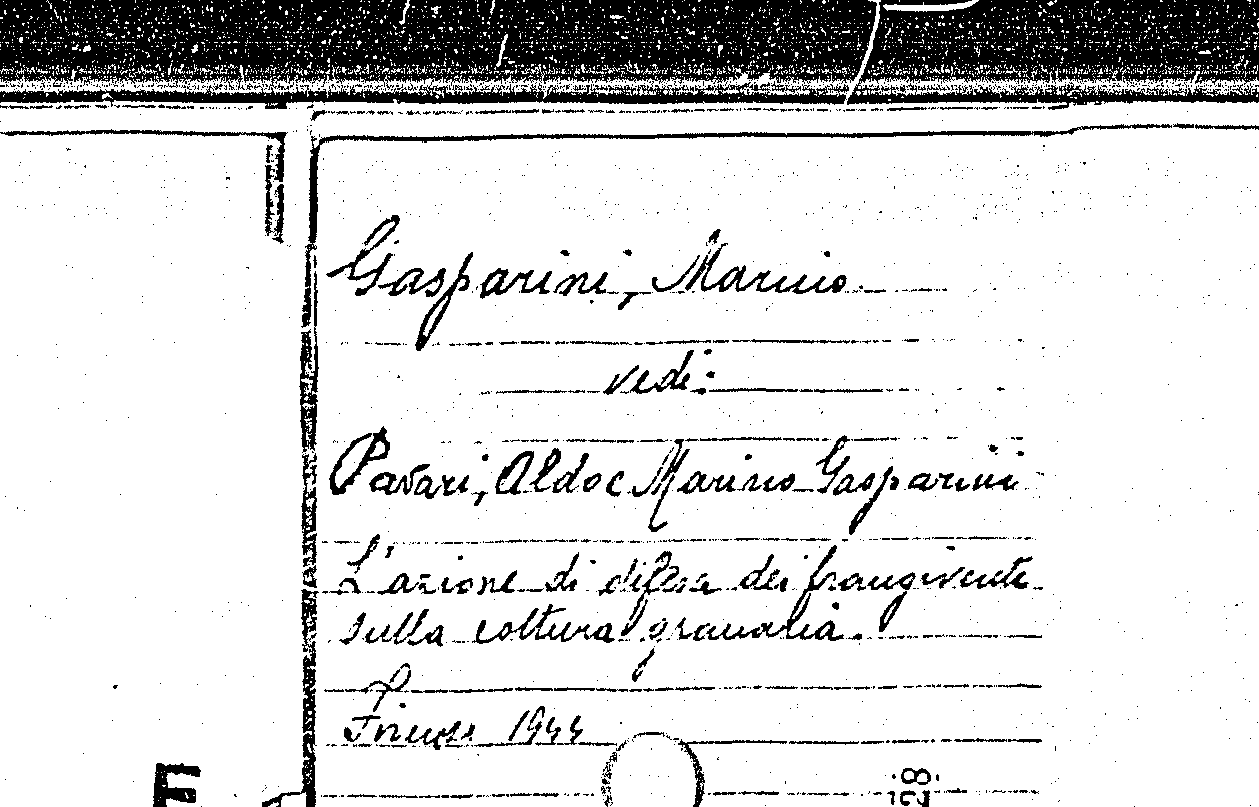 Gasparini, Marino
vedi:
Pavari, Aldo e Marino Gasparini
L'azione di difesa dei frangivente
sulla coltura granaria.
Firenze 1944
E